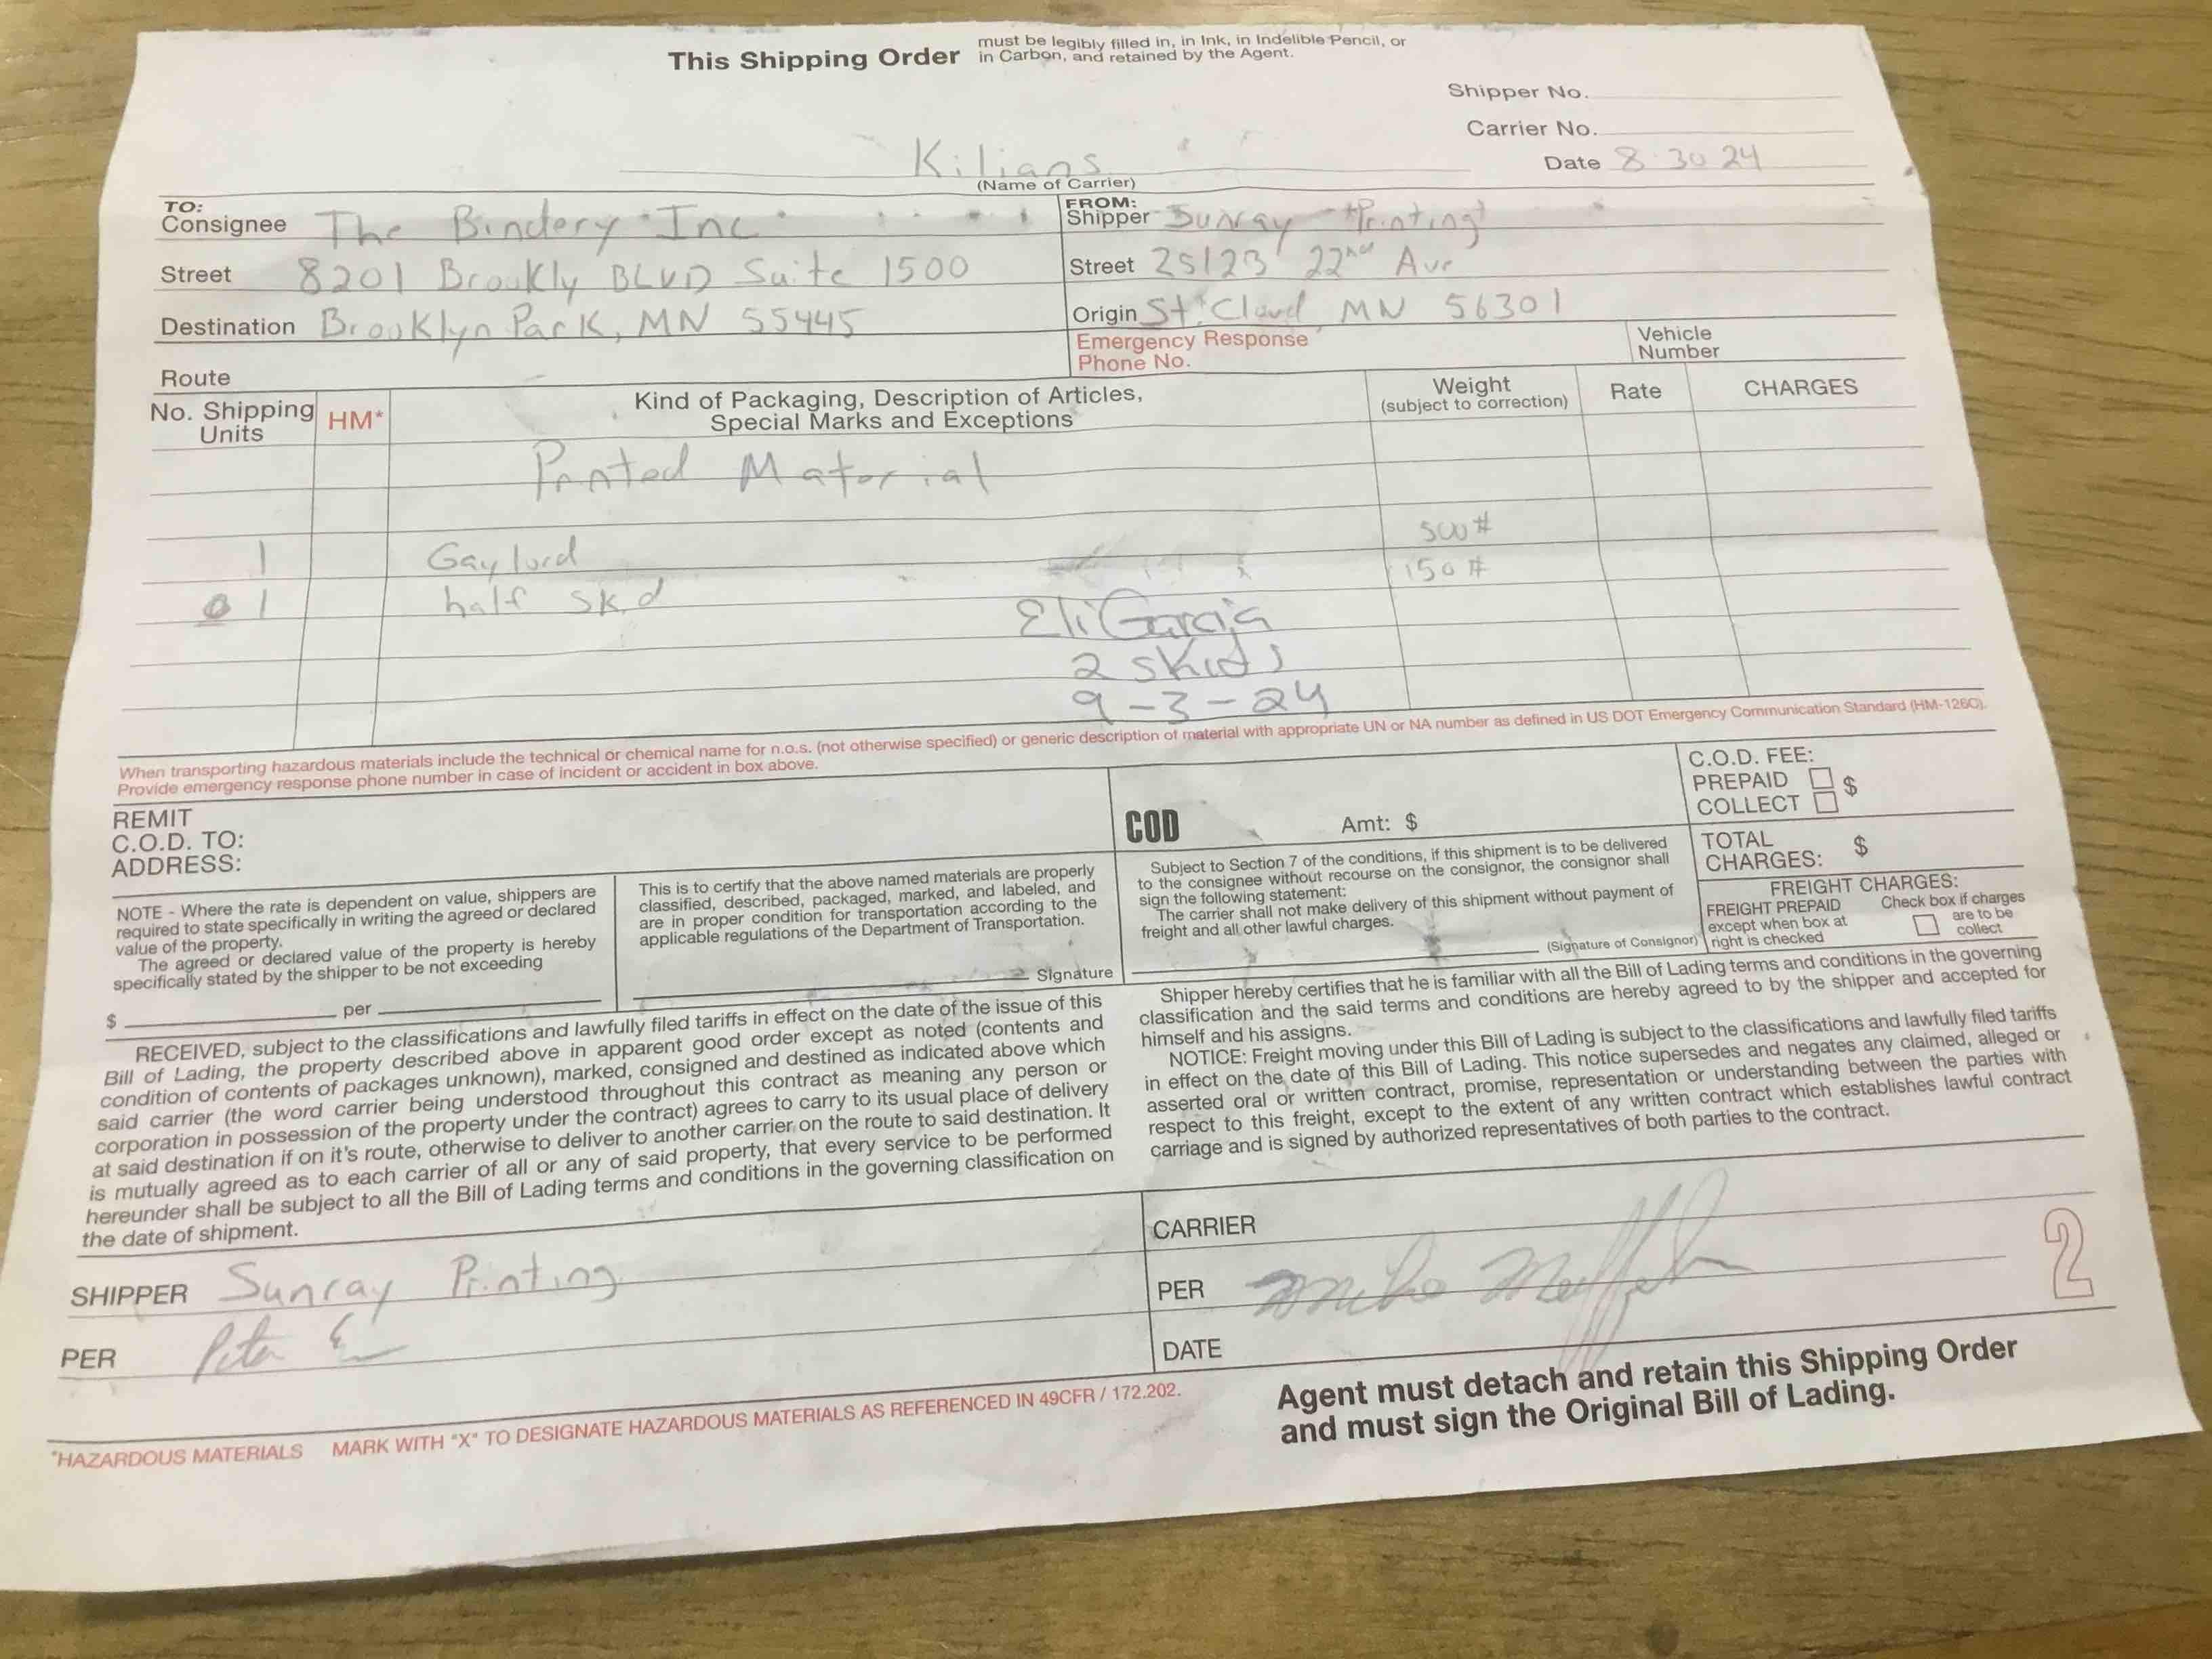 This Shipping Order must be legibly filled in, in Ink, in Indelible Pencil, or
in Carbon, and retained by the Agent.
Shipper No.
Carrier No.
Date 8 30 24
Kilians
(Name of Carrier)
TO:
Consignee The Bindery Inc
Street 8201 Brookly BLVD Suite 1500
Destination Brooklyn Park, MN 55445
Route
FROM:
Shipper Sunray Printing
Street 25123 22nd Ave
Origin St. Cloud MN 56301
Emergency Response
Phone No.
Vehicle
Number
No. Shipping
Units
HM*
Kind of Packaging, Description of Articles,
Special Marks and Exceptions
Weight
(subject to correction)
Rate
CHARGES
Printed Material
1 Gaylord 500#
1 half skid 150#
Eli Garcia
2 skids
9-3-24
When transporting hazardous materials include the technical or chemical name for n.o.s. (not otherwise specified) or generic description of material with appropriate UN or NA number as defined in US DOT Emergency Communication Standard (HM-126C).
Provide emergency response phone number in case of incident or accident in box above.
REMIT
C.O.D. TO:
ADDRESS:
COD Amt: $
C.O.D. FEE:
PREPAID $
COLLECT
TOTAL
CHARGES: $
NOTE - Where the rate is dependent on value, shippers are
required to state specifically in writing the agreed or declared
value of the property.
The agreed or declared value of the property is hereby
specifically stated by the shipper to be not exceeding
$ per
This is to certify that the above named materials are properly
classified, described, packaged, marked, and labeled, and
are in proper condition for transportation according to the
applicable regulations of the Department of Transportation.
Signature
Subject to Section 7 of the conditions, if this shipment is to be delivered
to the consignee without recourse on the consignor, the consignor shall
sign the following statement:
The carrier shall not make delivery of this shipment without payment of
freight and all other lawful charges.
(Signature of Consignor)
FREIGHT CHARGES:
FREIGHT PREPAID
except when box at
right is checked
Check box if charges
are to be
collect
RECEIVED, subject to the classifications and lawfully filed tariffs in effect on the date of the issue of this
Bill of Lading, the property described above in apparent good order except as noted (contents and
condition of contents of packages unknown), marked, consigned and destined as indicated above which
said carrier (the word carrier being understood throughout this contract as meaning any person or
corporation in possession of the property under the contract) agrees to carry to its usual place of delivery
at said destination if on it's route, otherwise to deliver to another carrier on the route to said destination. It
is mutually agreed as to each carrier of all or any of said property, that every service to be performed
hereunder shall be subject to all the Bill of Lading terms and conditions in the governing classification on
the date of shipment.
Shipper hereby certifies that he is familiar with all the Bill of Lading terms and conditions in the governing
classification and the said terms and conditions are hereby agreed to by the shipper and accepted for
himself and his assigns.
NOTICE: Freight moving under this Bill of Lading is subject to the classifications and lawfully filed tariffs
in effect on the date of this Bill of Lading. This notice supersedes and negates any claimed, alleged or
asserted oral or written contract, promise, representation or understanding between the parties with
respect to this freight, except to the extent of any written contract which establishes lawful contract
carriage and is signed by authorized representatives of both parties to the contract.
SHIPPER Sunray Printing
PER Peter
CARRIER
PER Mike
DATE
2
Agent must detach and retain this Shipping Order
and must sign the Original Bill of Lading.
*HAZARDOUS MATERIALS MARK WITH "X" TO DESIGNATE HAZARDOUS MATERIALS AS REFERENCED IN 49CFR / 172.202.